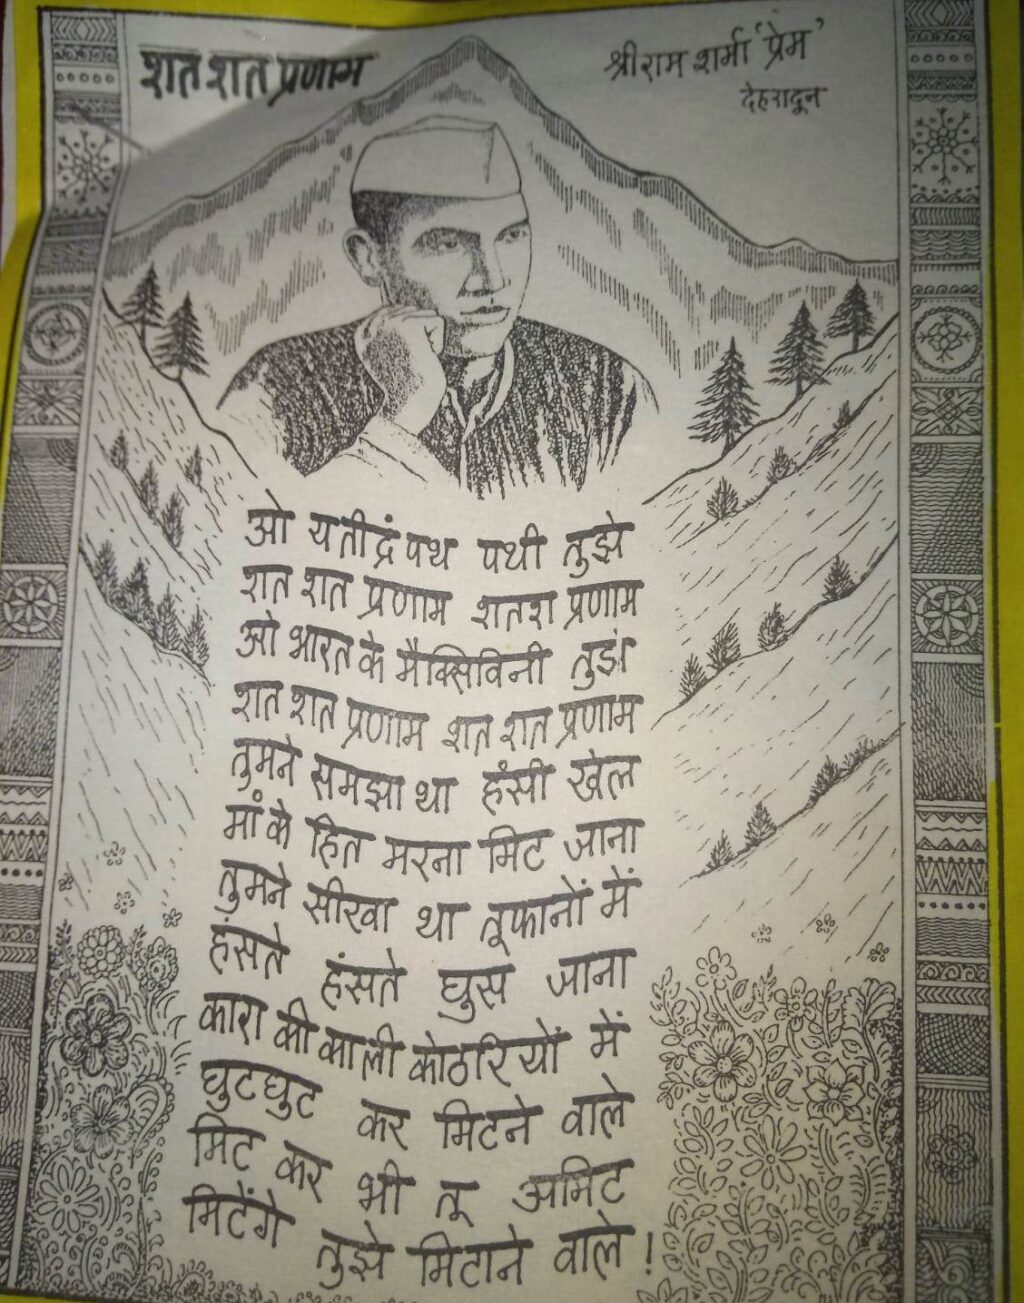 शत शत प्रणाम
श्रीराम शर्मा 'प्रेम'
देहरादून
ओ यतीद्रं पथ पथी तुझे
शत शत प्रणाम शतश प्रणाम
ओ भारत के मैक्सिविनी तुझे
शत शत प्रणाम शत शत प्रणाम
तुमने समझा था हंसी खेल
मां के हित मरना मिट जाना
तुमने सीखा था तूफानों में
हंसते हंसते घुस जाना
कारा की काली कोठरियों में
घुटघुट कर मिटने वाले
मिट कर भी तू अमिट
मिटेंगे तुझे मिटाने वाले!